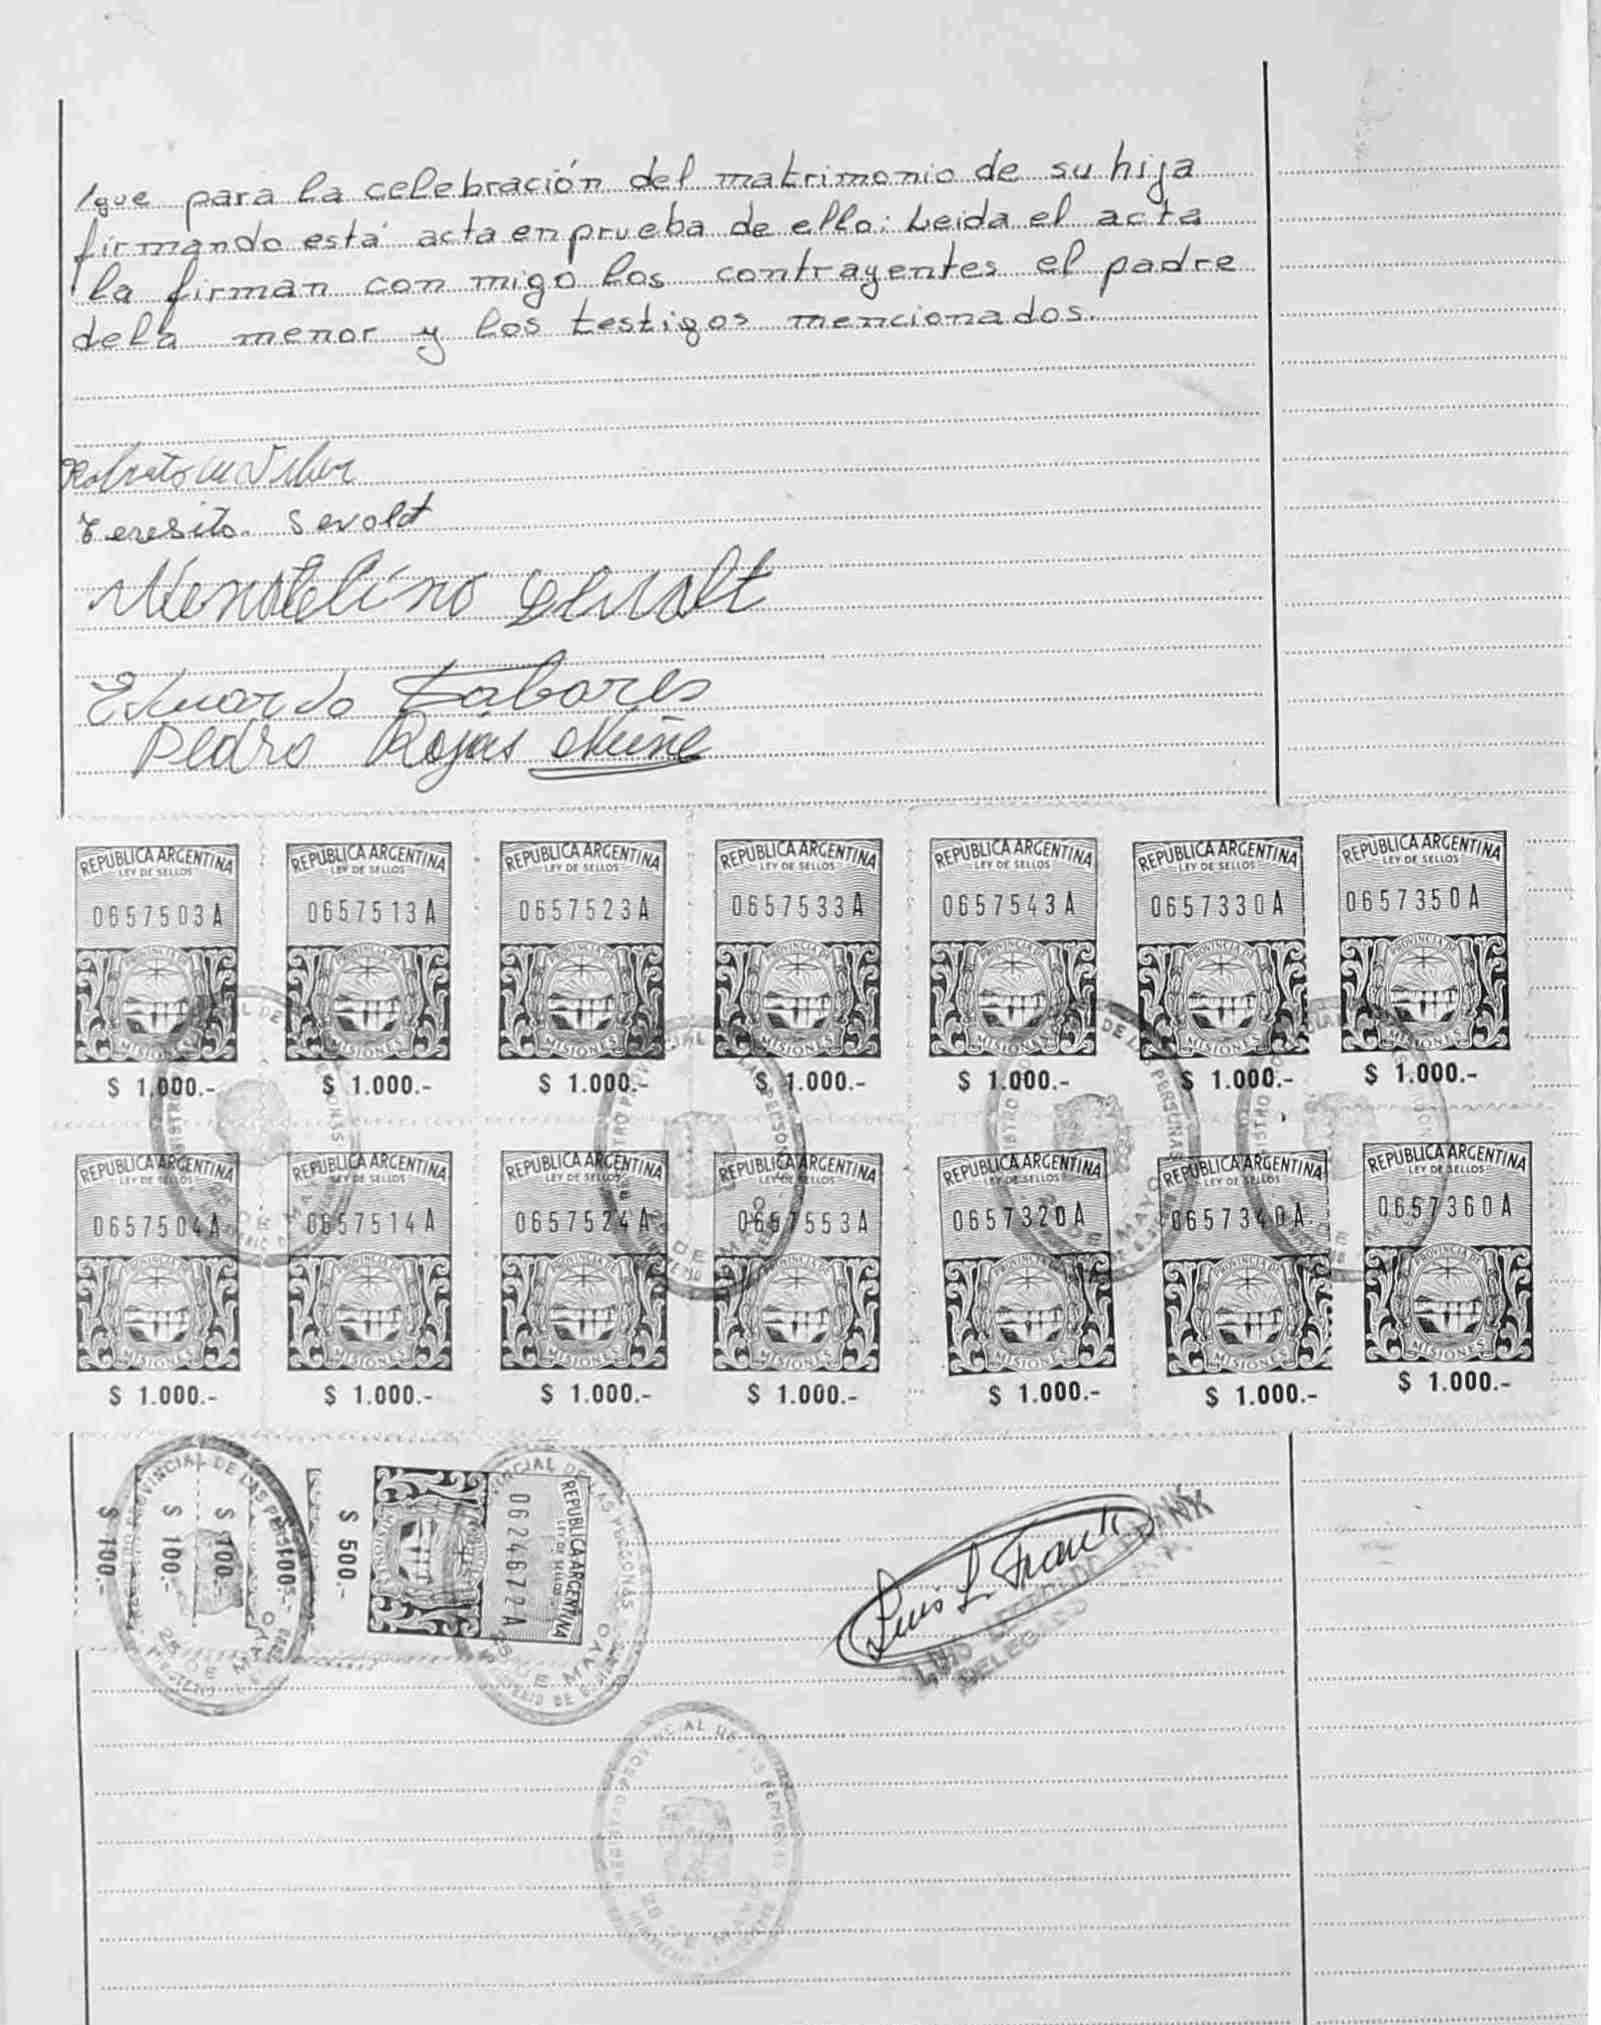 /que para la celebración del matrimonio de su hija
firmando está acta en prueba de ello: Leida el acta
la firman con migo los contrayentes el padre
dela menor y los testigos mencionados.
Teresita Sevolt
Eduardo Tabores
Pedro Rojas
REPUBLICA ARGENTINA REPUBLICA ARGENTINA REPUBLICA ARGENTINA REPUBLICA ARGENTINA REPUBLICA ARGENTINA REPUBLICA ARGENTINA REPUBLICA ARGENTINA
LEY DE SELLOS LEY DE SELLOS LEY DE SELLOS LEY DE SELLOS LEY DE SELLOS LEY DE SELLOS LEY DE SELLOS
0657503A 0657513A 0657523A 0657533A 0657543A 0657330A 0657350A
PROVINCIA DE PROVINCIA DE PROVINCIA DE PROVINCIA DE PROVINCIA DE PROVINCIA DE PROVINCIA DE
MISIONES MISIONES MISIONES MISIONES MISIONES MISIONES MISIONES
$ 1.000.- $ 1.000.- $ 1.000.- $ 1.000.- $ 1.000.- $ 1.000.- $ 1.000.-
REPUBLICA ARGENTINA REPUBLICA ARGENTINA REPUBLICA ARGENTINA REPUBLICA ARGENTINA REPUBLICA ARGENTINA REPUBLICA ARGENTINA REPUBLICA ARGENTINA
LEY DE SELLOS LEY DE SELLOS LEY DE SELLOS LEY DE SELLOS LEY DE SELLOS LEY DE SELLOS LEY DE SELLOS
0657504A 0657514A 0657524A 0657553A 0657320A 0657340A 0657360A
PROVINCIA DE PROVINCIA DE PROVINCIA DE PROVINCIA DE PROVINCIA DE PROVINCIA DE PROVINCIA DE
MISIONES MISIONES MISIONES MISIONES MISIONES MISIONES MISIONES
$ 1.000.- $ 1.000.- $ 1.000.- $ 1.000.- $ 1.000.- $ 1.000.- $ 1.000.-
$ 100.- $ 100.- $ 100.- $ 100.-
$ 500.-
REPUBLICA ARGENTINA
LEY DE SELLOS
0624672A
MISIONES
PROVINCIAL DE LAS PERSONAS
25 DE MAYO
Luis L. Frank
LUIS LEOPOLDO FRANK
DELEGADO
REGISTRO PROVINCIAL DE LAS PERSONAS
25 DE MAYO